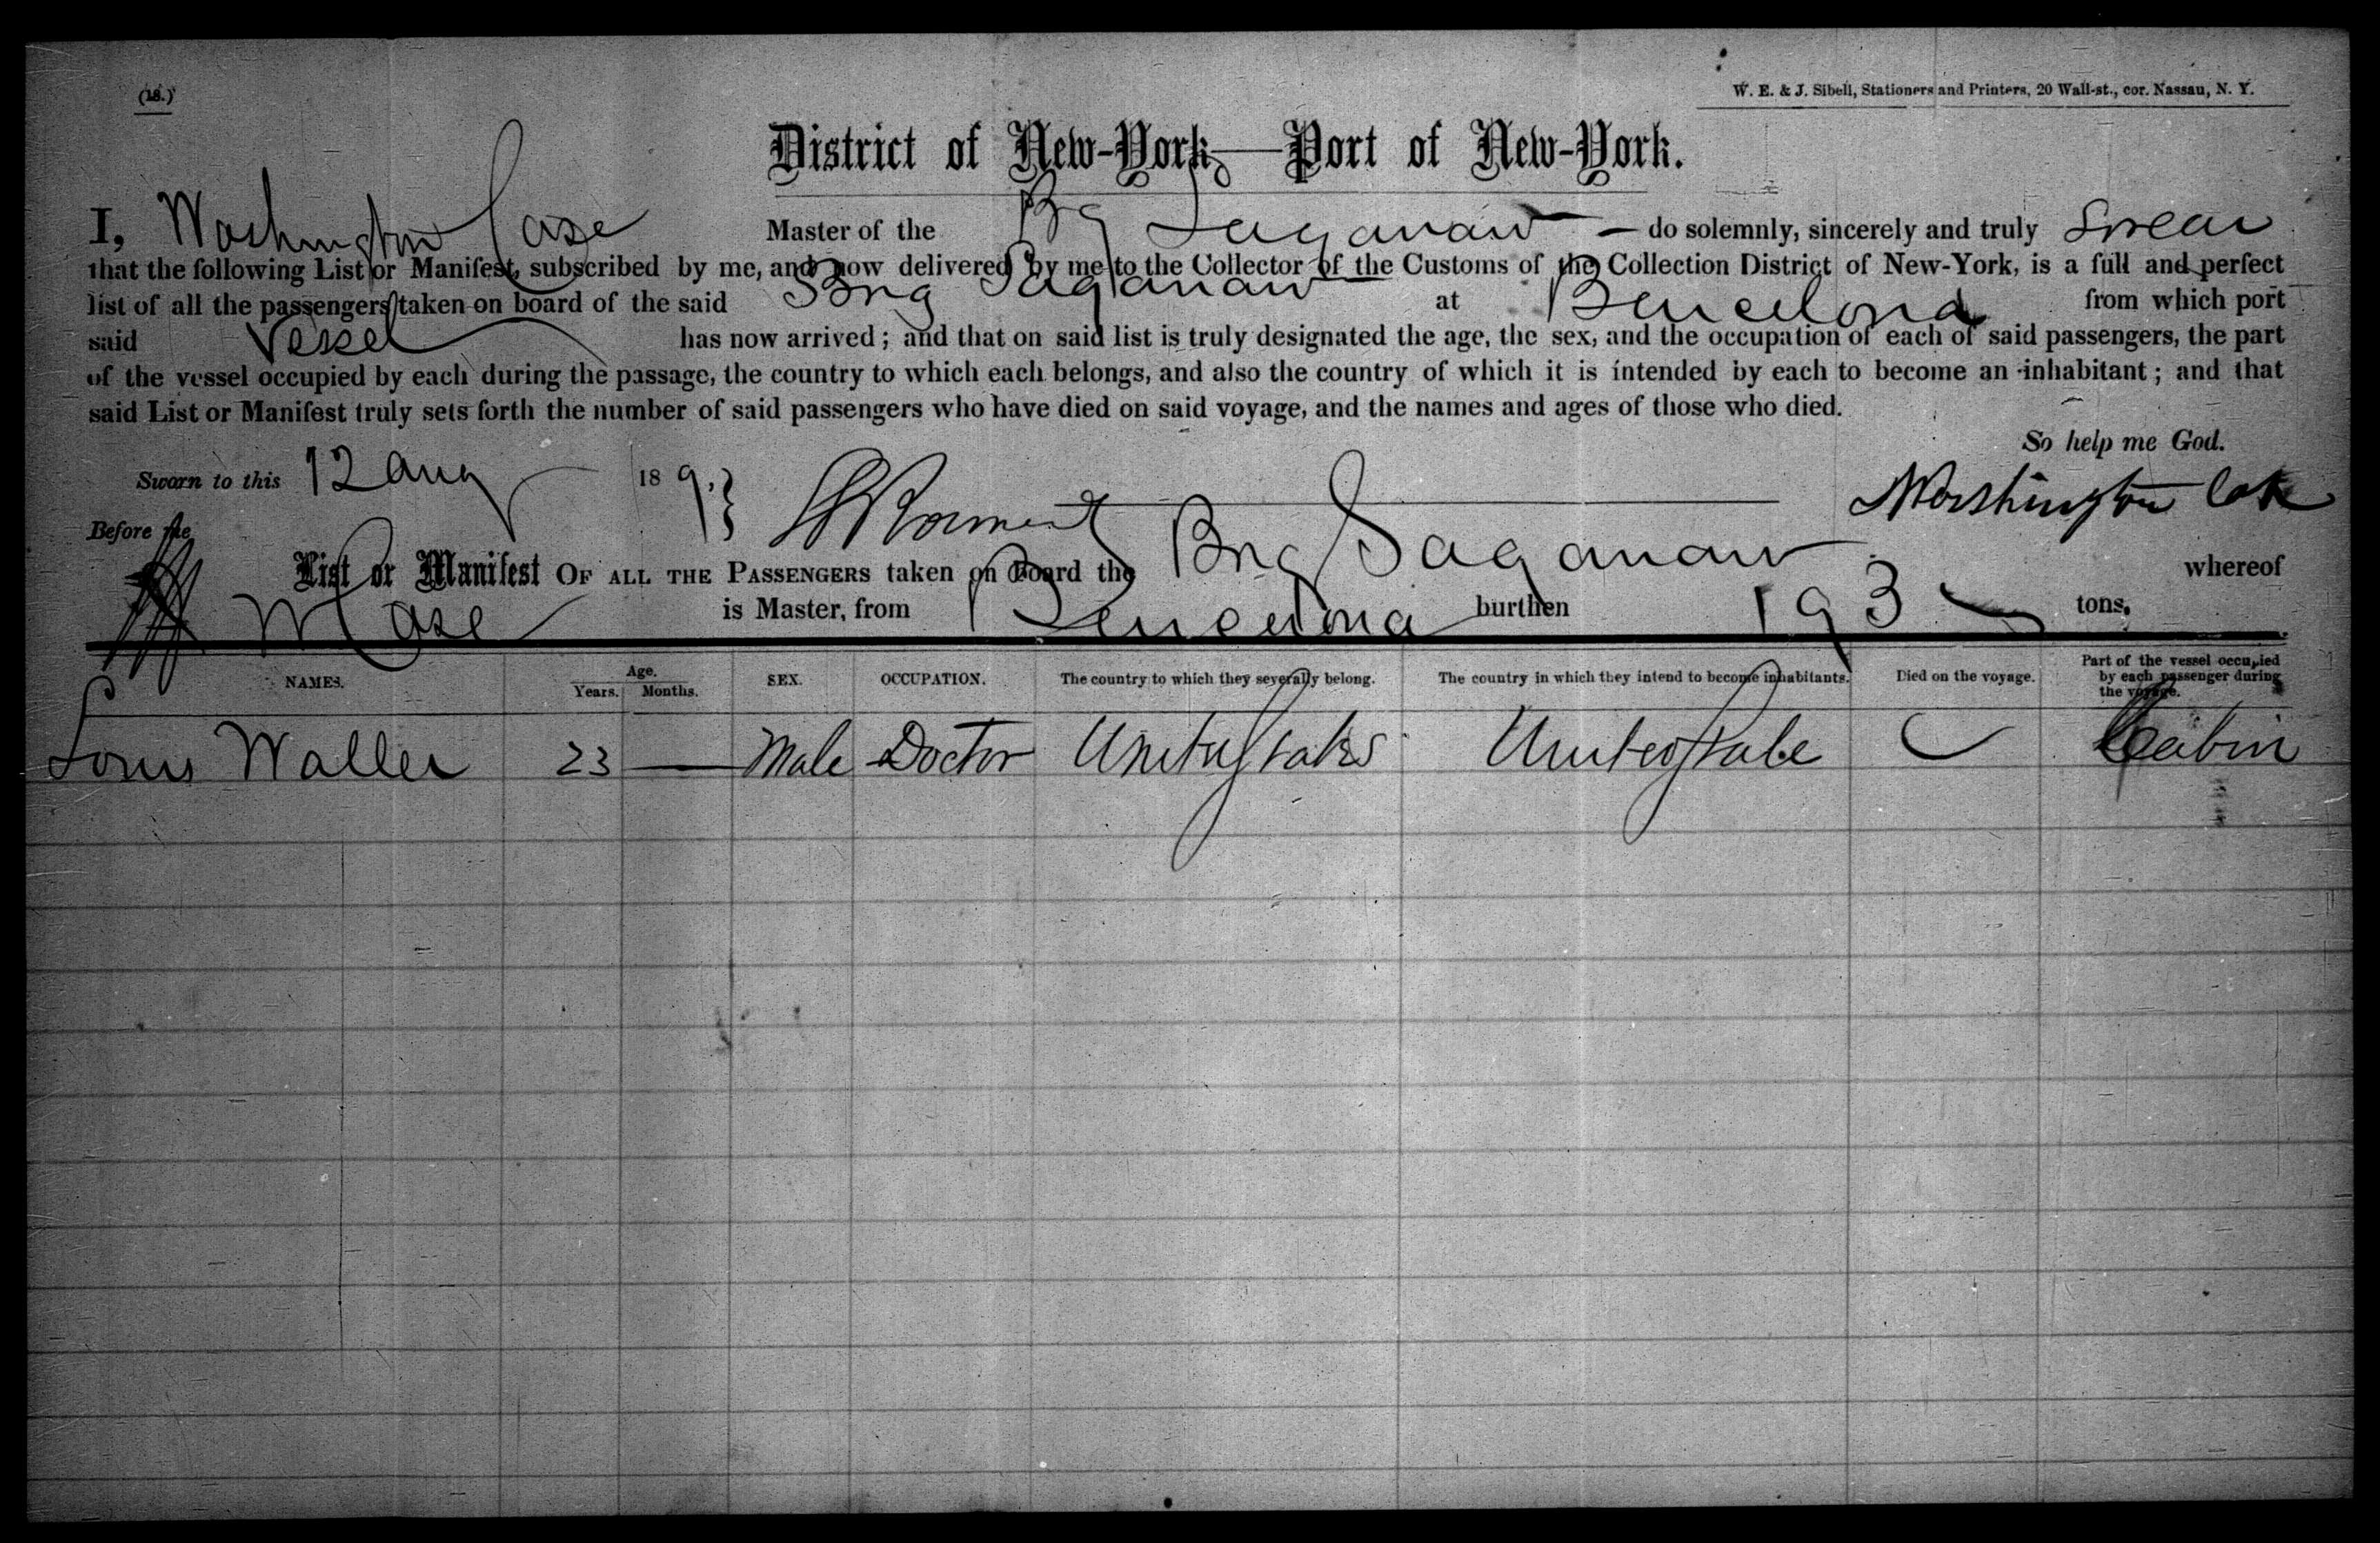 (18.)
W. E. & J. Sibell, Stationers and Printers, 20 Wall-st., cor. Nassau, N. Y.
District of New-York—Port of New-York.
I, Washington Case Master of the Bg Saganaw — do solemnly, sincerely and truly Swear
that the following List or Manifest, subscribed by me, and now delivered by me to the Collector of the Customs of the Collection District of New-York, is a full and perfect
list of all the passengers taken on board of the said Brig Saganaw at Bencelona from which port
said Vessel has now arrived; and that on said list is truly designated the age, the sex, and the occupation of each of said passengers, the part
of the vessel occupied by each during the passage, the country to which each belongs, and also the country of which it is intended by each to become an inhabitant; and that
said List or Manifest truly sets forth the number of said passengers who have died on said voyage, and the names and ages of those who died.
So help me God.
Sworn to this 12 Aug 18 Washington
Before me
List or Manifest OF ALL THE PASSENGERS taken on Board the Brig Saganaw whereof
W Case is Master, from Bencelona burthen 193 tons.
NAMES. Age. Years. Months. SEX. OCCUPATION. The country to which they severally belong. The country in which they intend to become inhabitants. Died on the voyage. Part of the vessel occupied by each passenger during the voyage.
Louis Waller 23 — Male Doctor United States United State Cabin